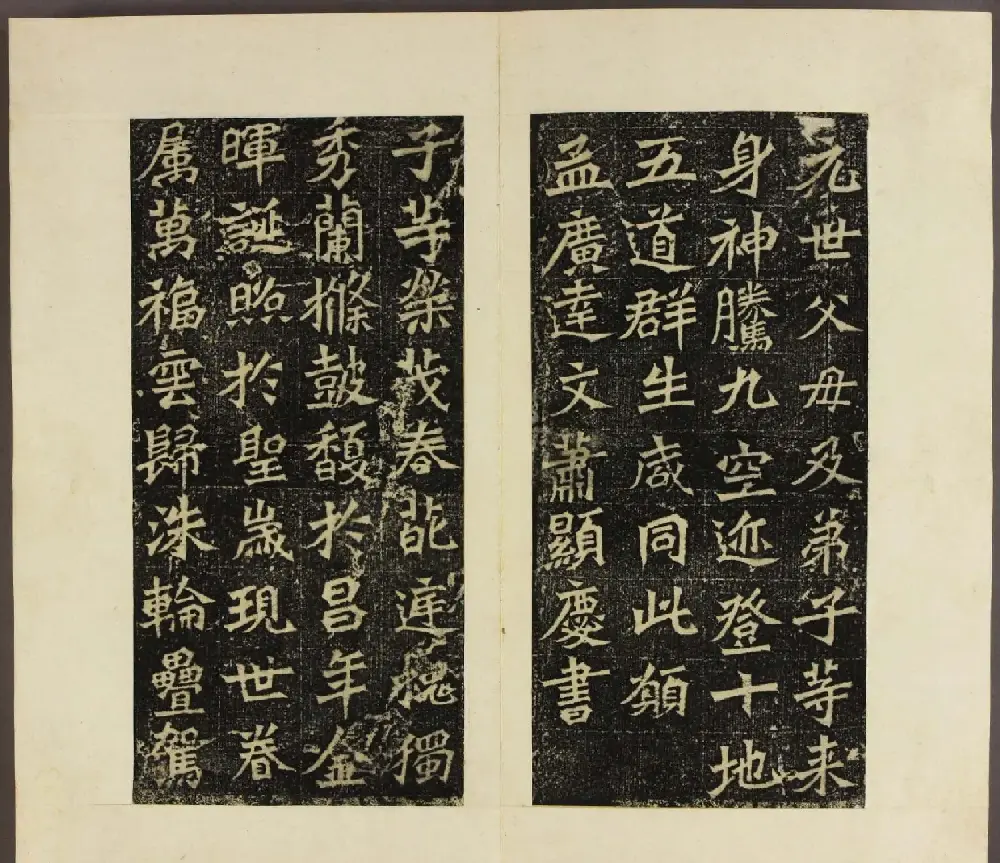 元世父母及弟子等来
身神騰九空迹登十地
五道群生咸同此願
孟廣達文蕭顯慶書
子等榮茂春葩庭槐獨
秀蘭條鼓馥於昌年金
暉誕照於聖歲現世眷
属萬福雲歸洙輪疊駕